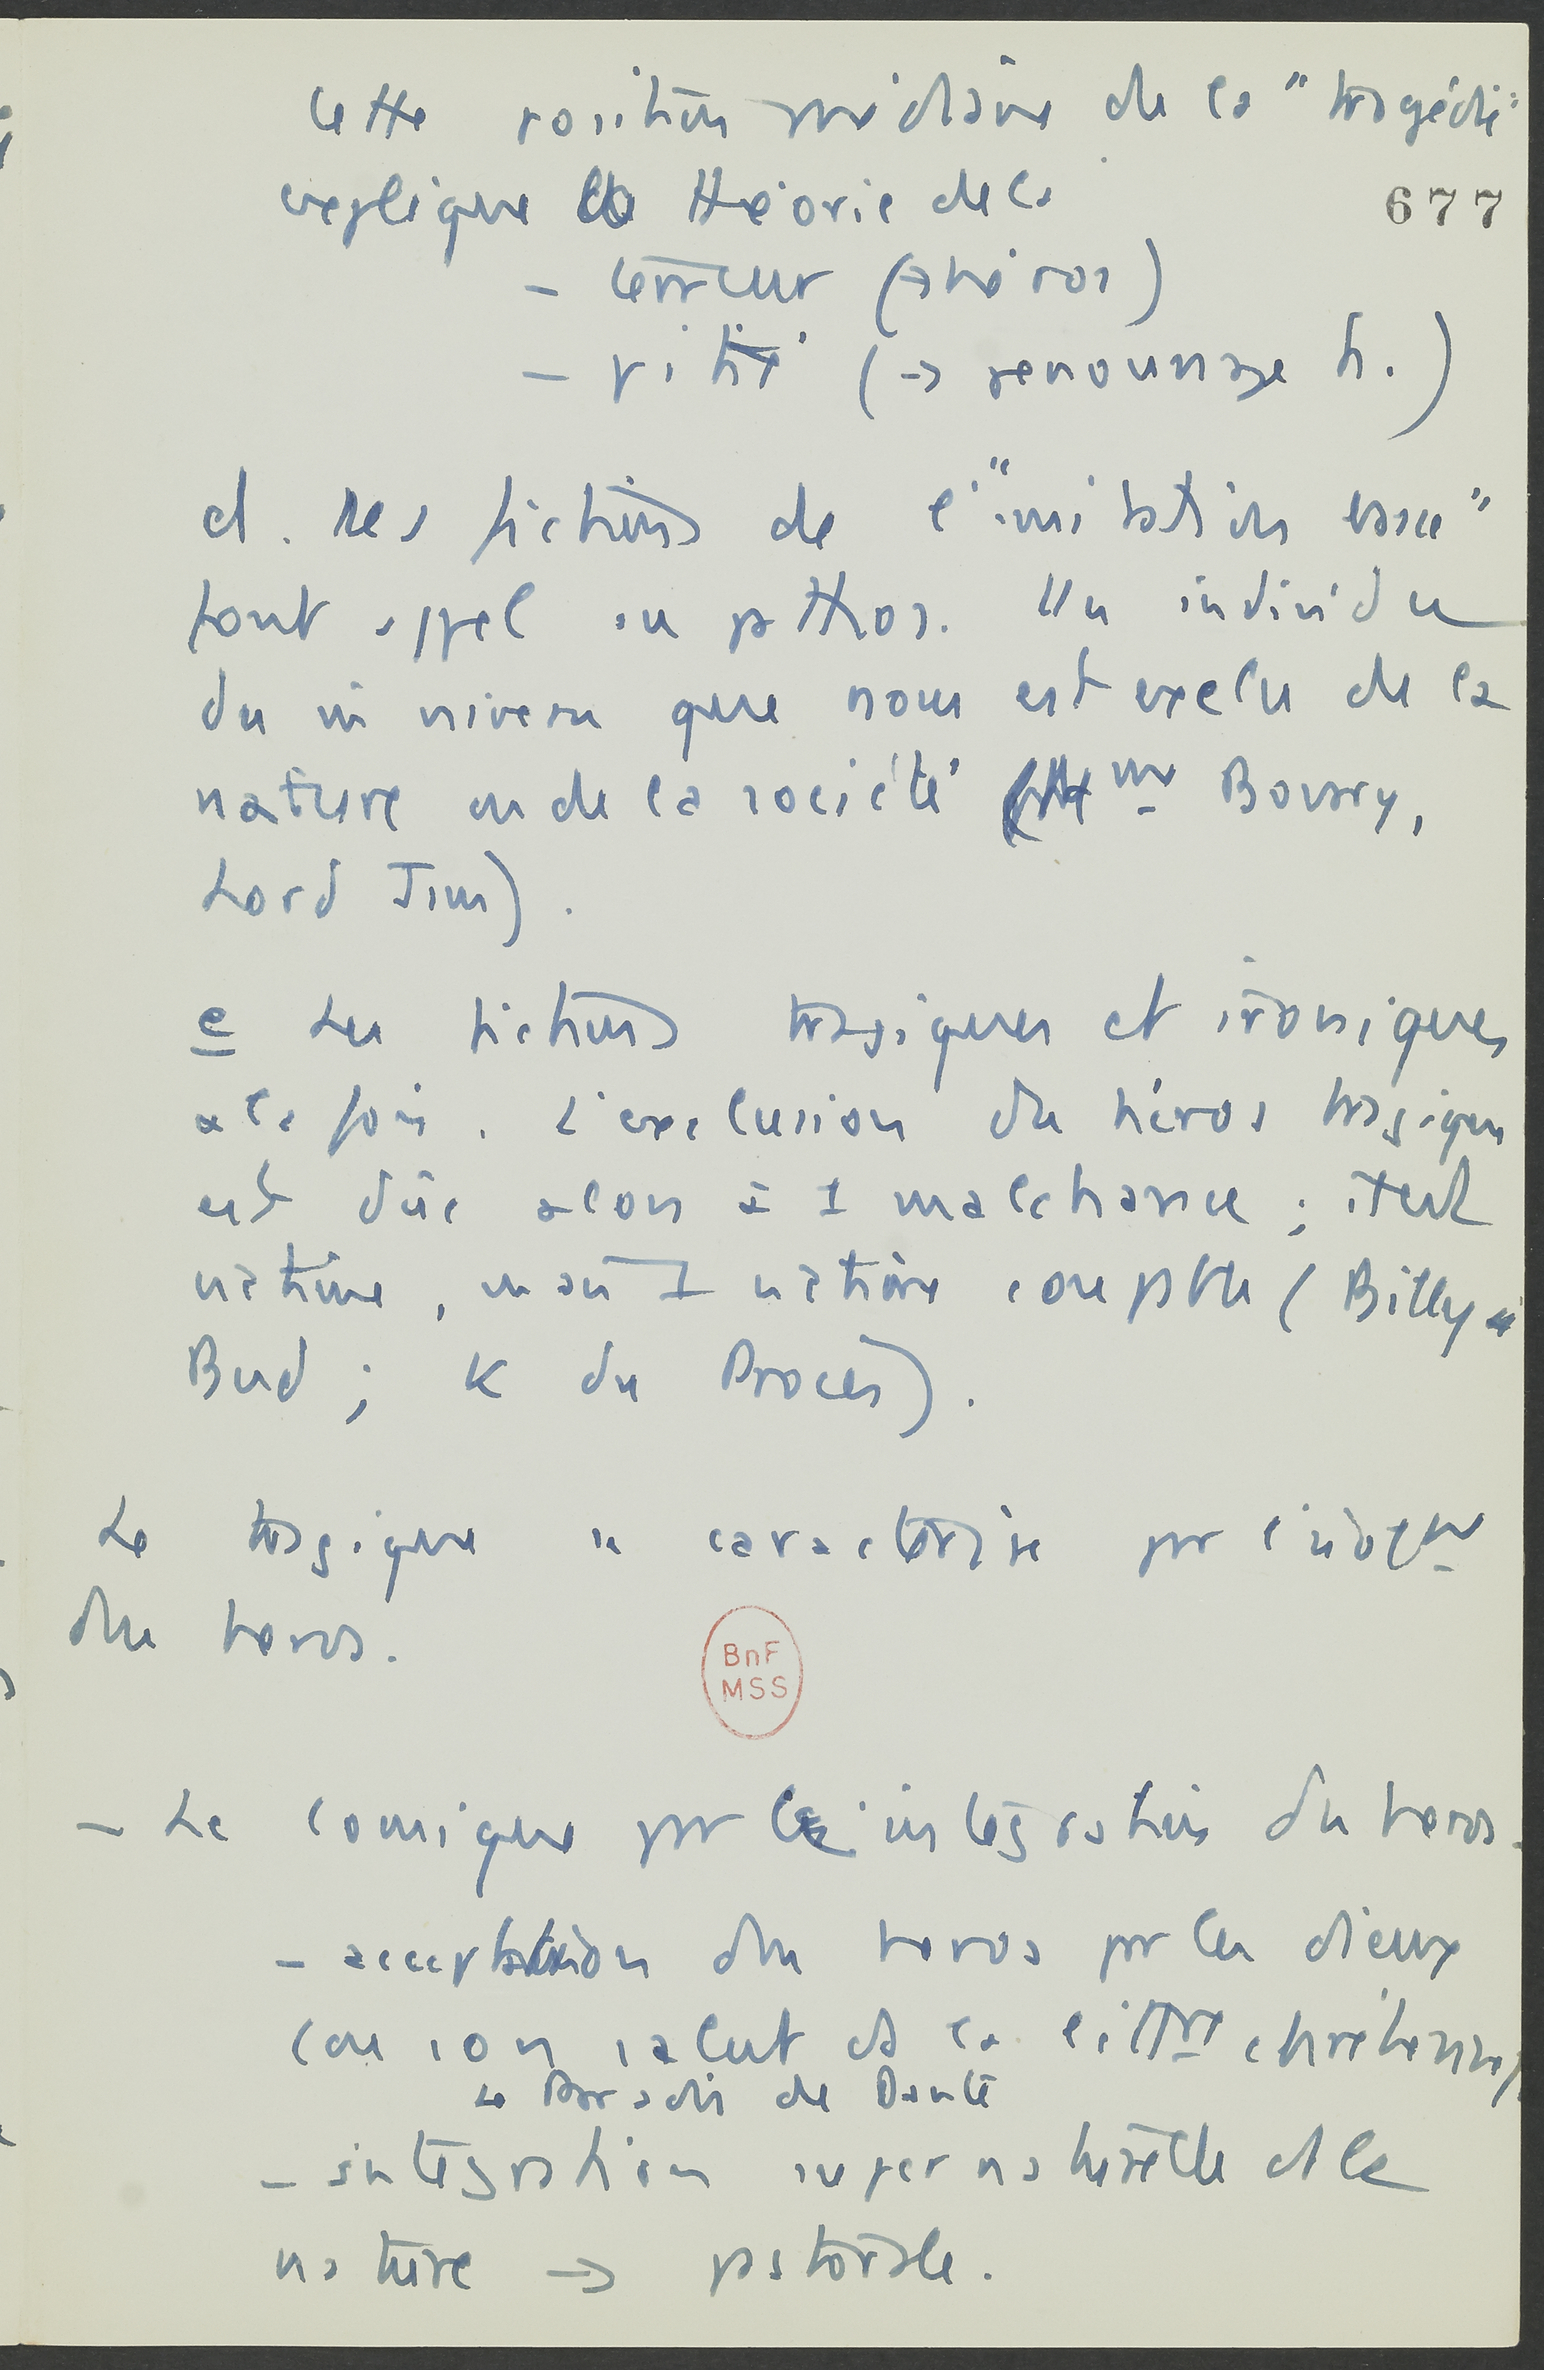 Cette position médiane de la "tragédie"
explique la théorie de la
677
- terreur (→ héros)
- pitié (→ personnage h.)
d. Les fictions de l'"imitation basse"
font appel au pathos. Un individu
du m niveau que nous est exclu de la
nature ou de la société (Mme Bovary,
Lord Jim).
e Les fictions tragiques et ironiques
à la fois. L'exclusion du héros tragique
est dûe alors à 1 malchance ; il est
victime, mais 1 victime coupable (Billy
Bud ; K du Procès).
Le tragique se caractérise par l'isolemt
du heros.
BnF
MSS
- Le comique par l'intégration du heros.
- acceptation du heros par les dieux
(ou son salut ds la littre chrétienne)
Le Paradis de Dante
- intégration supernaturelle ds la
nature → pastorale.